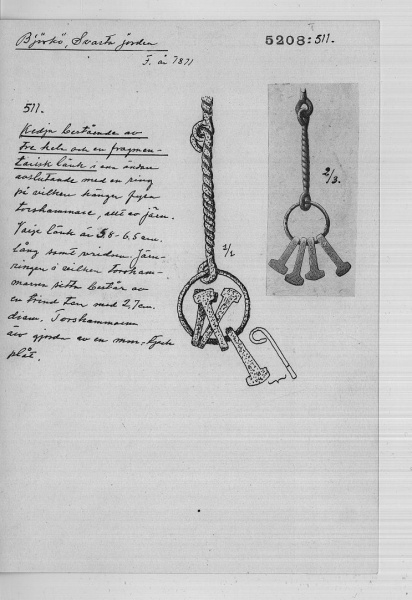 Björkö, Svarta jorden
5208:511.
F. år 1871
511.
Kedja bestående av
tre hela och en fragmen-
tarisk länk i ena ändan
avslutande med en ring
på vilken hänga fyra
torshammare, allt av järn.
Varje länk är 5.8-6,5 cm.
lång samt vriden. Järn-
ringen å vilken torsham-
marna sitta består av
en trind ten med 2,7 cm.
diam. Torshammarna
äro gjorda av en mm. tjock
plåt.
1/1
2/3.